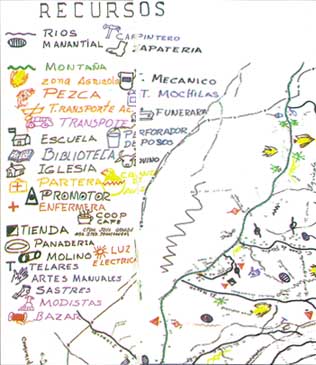 RECURSOS
RIOS
MANANTIAL
CARPINTERO
ZAPATERIA
MONTAÑA
zona Agricola
PEZCA
T.TRANSPORTE AC.
TRANSPOTE
MECANICO
T. MOCHILAS
FUNERARA
ESCUELA
BIBLIOTECA
IGLESIA
PARTERA
PROMOTOR
ENFERMERA
PERFORADOR
POSOS
COOP
CAFE
TIENDA
PANADERIA
MOLINO
LUZ
ELECTRICA
TELARES
ARTES MANUALES
SASTRES
MODISTAS
BAZAR